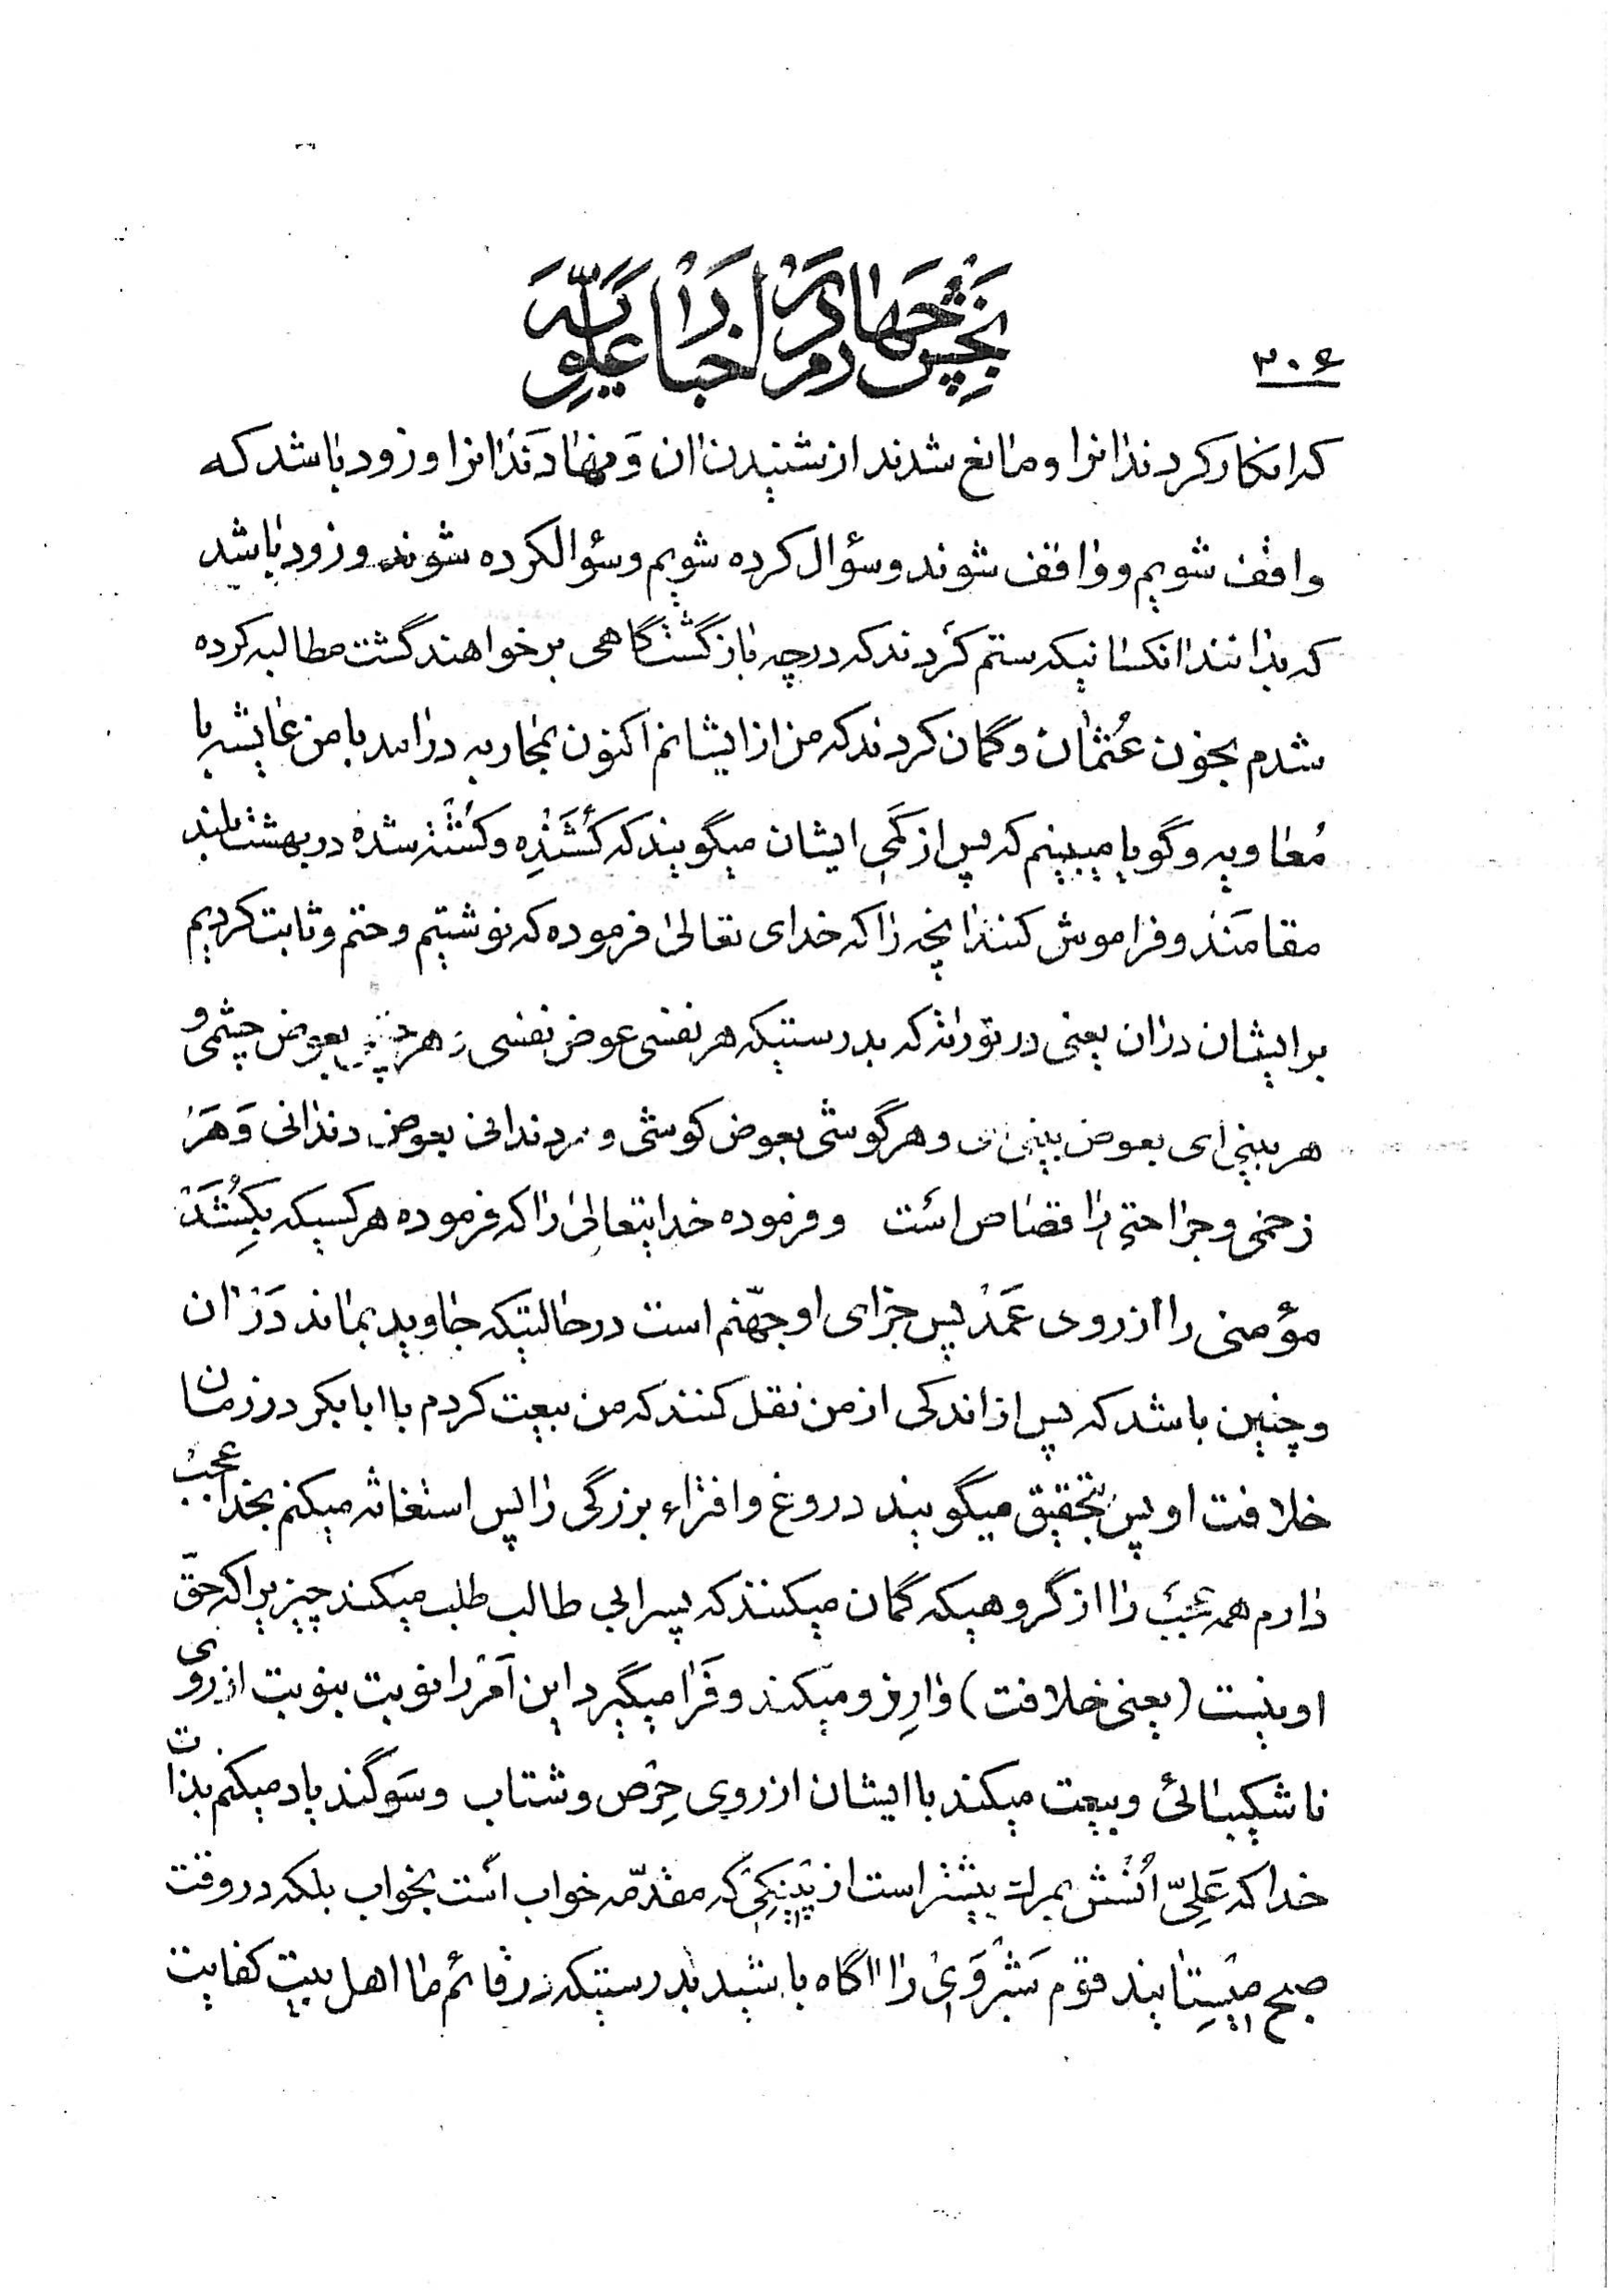 بخش چهارم در اخبار علویه
۳۰۶
که انکار کردند انرا و مانع شدند از شنیدن ان وَ نهادَند انرا و زود باشد که
واقف شویم و واقف شوند و سؤال کرده شویم و سؤال کرده شوند و زود باشد
که بدانند انکسانیکه ستم کردند که در چه بازگشتگاهی بر خواهند گشت مطالبه کرده
شدم بخون عُثمان و گمان کردند که من از ایشانم اکنون بمحاربه درامد با من عایشه با
مُعاویه و گویا میبینم که پس از کمی ایشان میگویند که کُشَنْدِه و کُشْتَه شده در بهشت بلند
مقامَند و فراموش کنند انچه را که خدای تعالی فرموده که نوشتیم و حتم و ثابت کردیم
بر ایشان در ان یعنی در توراة که بدرستیکه هر نفسی عوض نفسی و هر چشمی بعوض چشمی و
هر بینی ای بعوض بینی ای و هر گوشی بعوض گوشی و هر دندانی بعوض دندانی وَ هَرْ
زخمی و جراحتی را قصاص است و فرموده خدایتعالی را که فرموده هر کسیکه بِکُشَدْ
مؤمنی را از روی عَمَدْ پس جزای او جهّنم است در حالتیکه جاوید بماند دَرْ ان
و چنین باشد که پس از اندکی از من نقل کنند که من بیعت کردم با ابابکر در زمان
خلافت او پس بتحقیق میگویند دروغ و افتراء بزرگی را پس استغاثه میکنم بخدا عجب
دارم همه عجب را از گروهیکه گمان میکنند که پسر ابی طالب طلب میکند چیزیرا که حقّ
او نیست (یعنی خلافت) و ارزو میکند و فرا میگیرد این اَمرْ را نوبت بنوبت از روی
ناشکیبائی و بیعت میکند با ایشان از روی حِرْص و شتاب و سَوگند یاد میکنم بذات
خدا که عَلِیّ اُنْسش بمرك بیشتر است از پینکی که مقدّمه خواب است بخواب بلکه در وقت
صبح میسِتایند قوم شَبْرَوی را اگاه باشید بدرستیکه در قائم ما اهل بیت کفایت